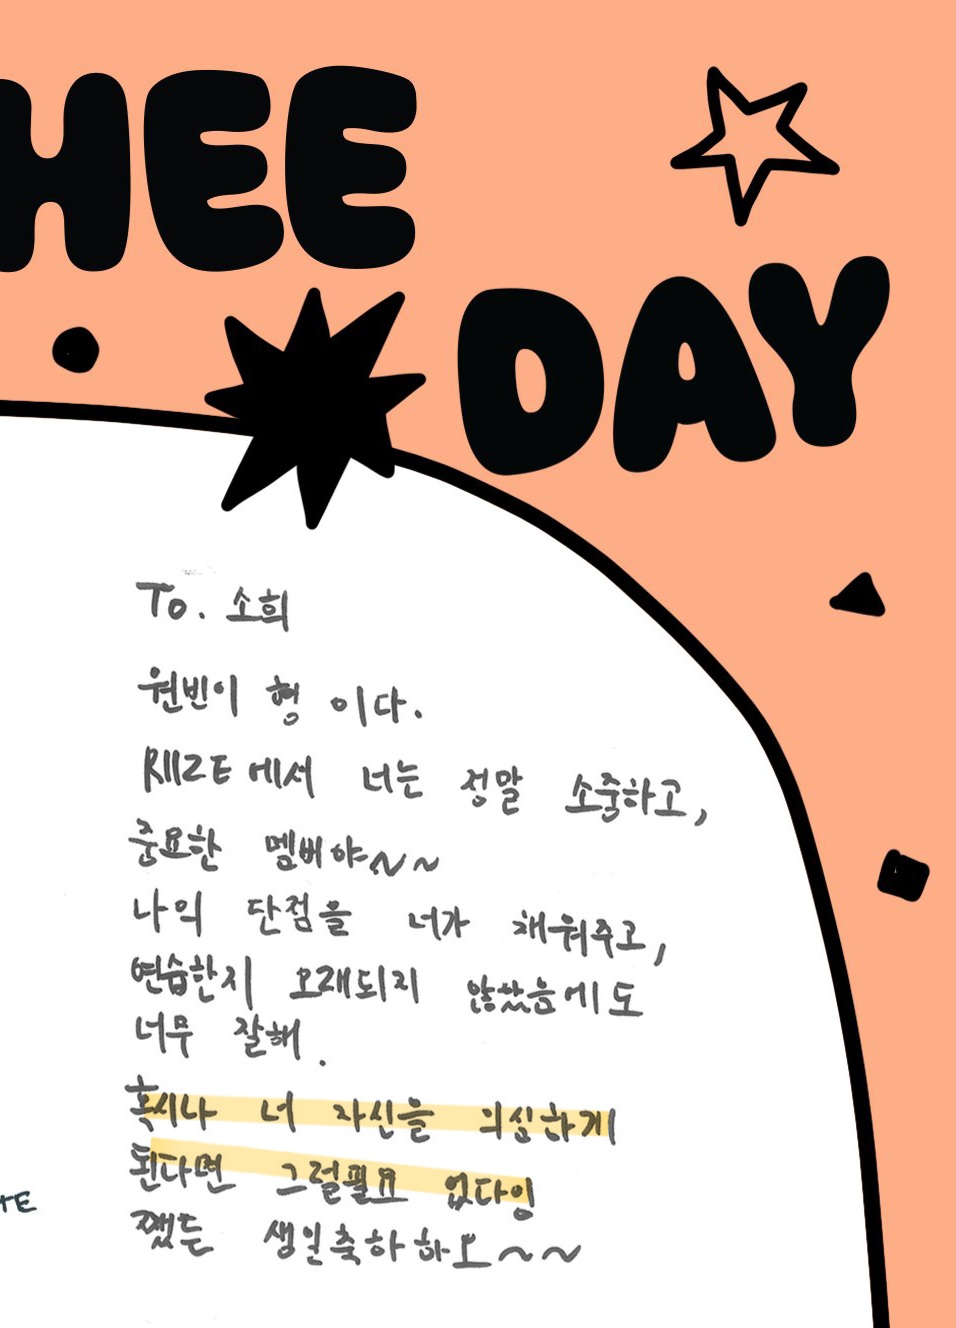 HEE
DAY
To. 소희
원빈이 형 이다.
RIIZE에서 너는 정말 소중하고,
중요한 멤버야~~
나의 단점을 너가 채워주고,
연습한지 오래되지 않았음에도
너무 잘해.
혹시나 너 자신을 의심하게
된다면 그럴필요 없다잉
쨌든 생일축하하오~~
TE